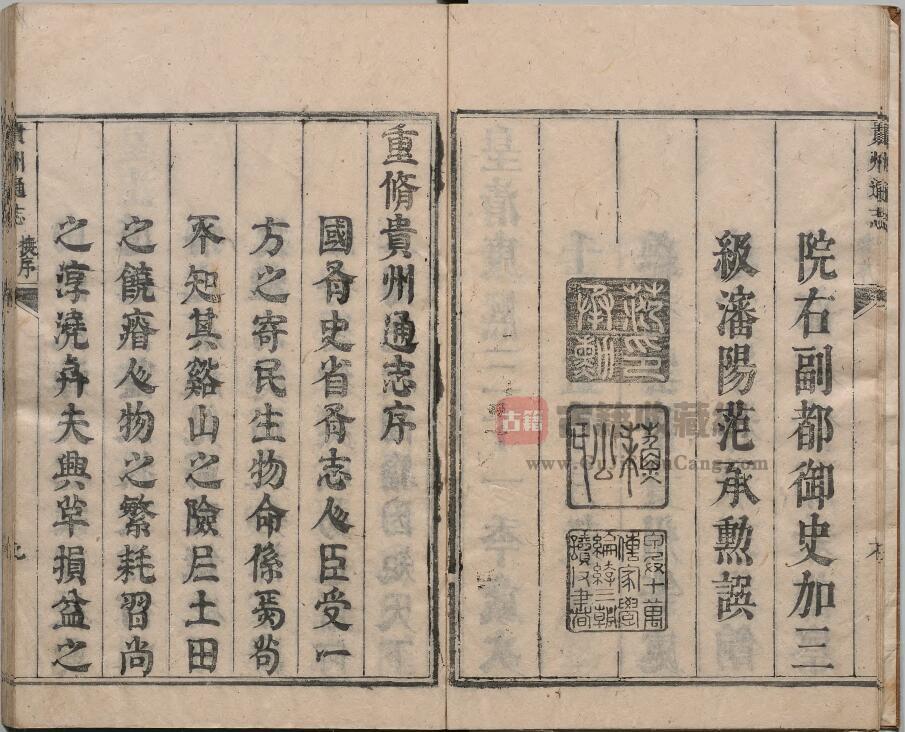 院右副都御史加三
級瀋陽范承勳譔
貴州通志
重脩貴州通志序
國有史省有志人臣受一
方之寄民生物命係焉茍
不知其谿山之險戹土田
之饒瘠人物之繁耗習尚
之淳澆與夫興革損益之
貴州通志
撫序
古籍
古籍收藏
www.GujiShuCang.com